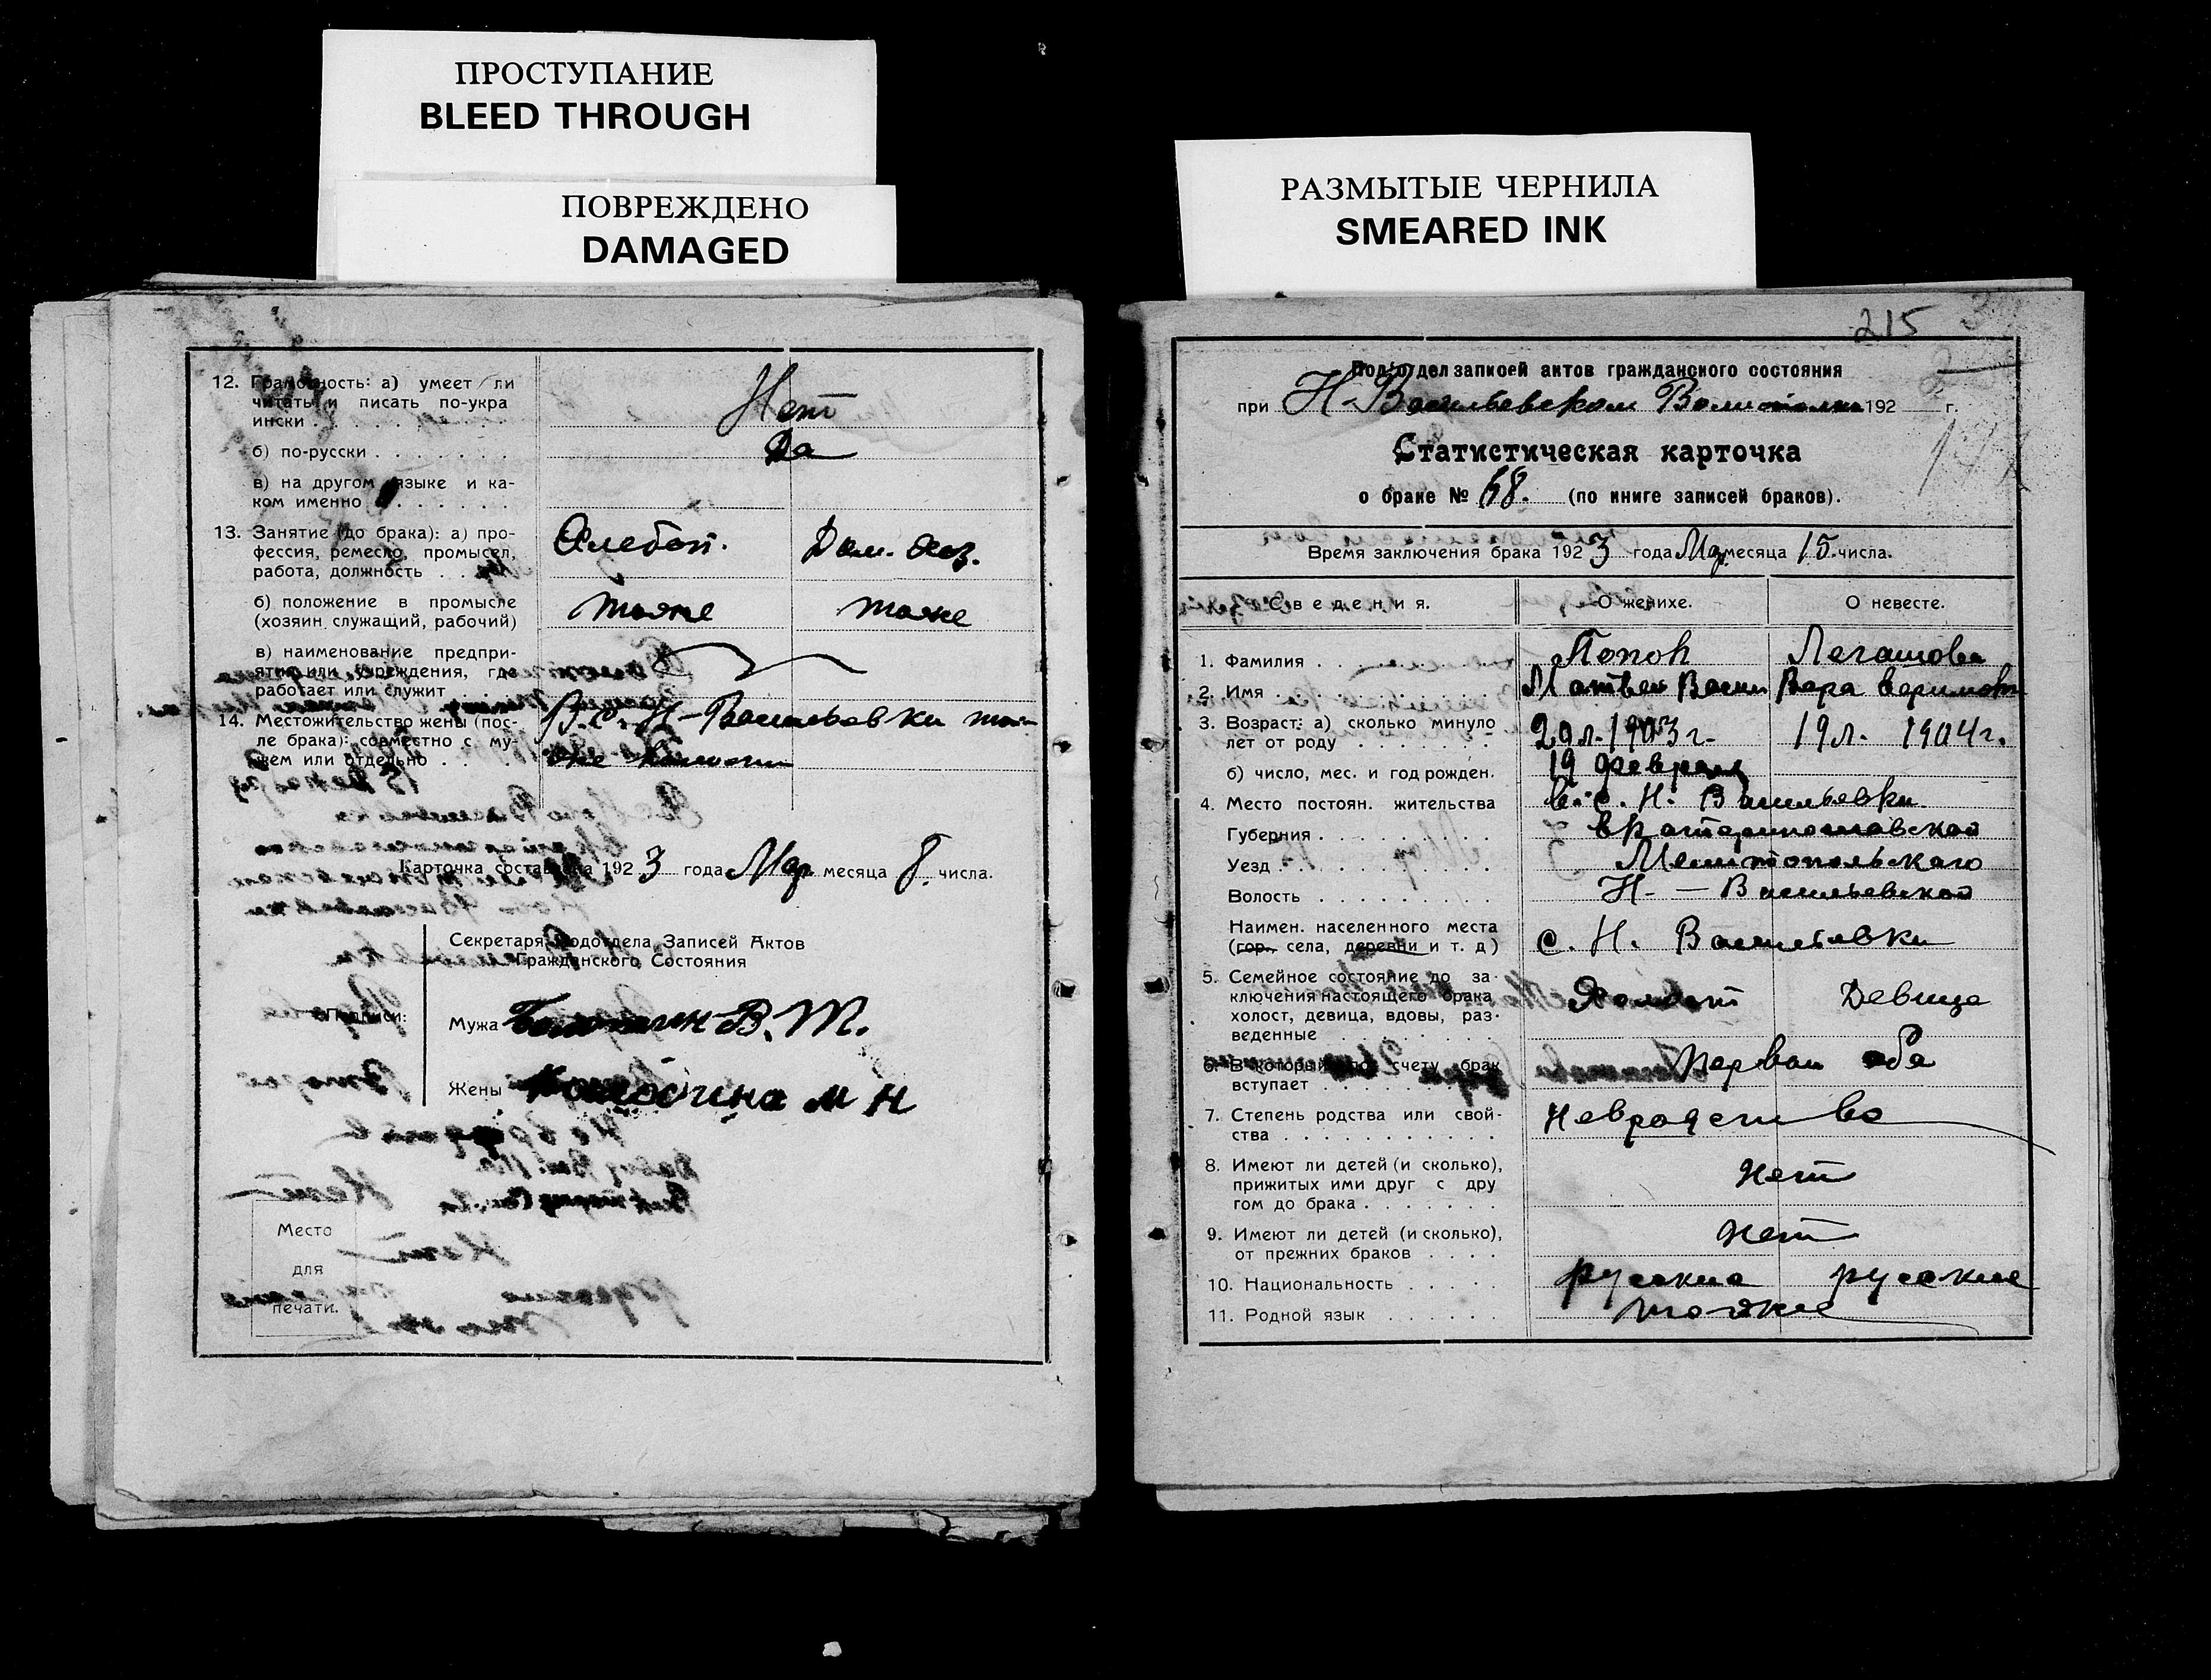 ПРОСТУПАНИЕ
BLEED THROUGH
ПОВРЕЖДЕНО
DAMAGED
12. Грамотность: а) умеет ли
читать и писать по-укра
ински . . . . . . . . Нет
б) по-русски . . . . . . . Да
в) на другом языке и ка-
ком именно . . . . . .
13. Занятие (до брака): а) про-
фессия, ремесло, промысел, Хлебоп. Дом. хоз.
работа, должность . . .
б) положение в промысле тоже тоже
(хозяин служащий, рабочий)
в) наименование предпри-
ятия или учреждения, где
работает или служит . . .
14. Местожительство жены (пос- В. с. Н-Васильевки той
ле брака): совместно с му-
жем или отдельно . . . . же волости
Карточка составлена 1923 года Мар. месяца 8. числа.
Секретаря Подотдела Записей Актов
Гражданского Состояния
Подписи:
Мужа В. Т.
Жены М Н
Место
для
печати.
РАЗМЫТЫЕ ЧЕРНИЛА
SMEARED INK
215
Под'отдел записей актов гражданского состояния
при Н-Васильевском 192 г.
Статистическая карточка
о браке № 68. (по книге записей браков).
Время заключения брака 1923 года Мар. месяца 15. числа.
Сведения. О женихе. О невесте.
1. Фамилия . . Попов Легашова
2. Имя . . . Матвей Васил Вера
3. Возраст: а) сколько минуло
лет от роду . . . . . . . 20 л. 1903 г. 19 л. 1904 г.
б) число, мес. и год рожден. 19 февраля
4. Место постоян. жительства в. с. Н. Васильевки
Губерния . . . . . . . . . Екатеринославской
Уезд . . . . . . . . . . . Мелитопольскаго
Волость . . . . . . . . . Н. — Васильевской
Наимен. населенного места
(гор. села, деревни и т. д) с. Н. Васильевки
5. Семейное состояние до за-
ключения настоящего брака Холост Девица
холост, девица, вдовы, раз-
веденные . . . . . . .
6. В который по счету брак Первый оба
вступает . . . . . . . .
7. Степень родства или свой- Невродстве
ства . . . . . . . . . . .
8. Имеют ли детей (и сколько),
прижитых ими друг с дру Нет
гом до брака . . . . . . .
9. Имеют ли детей (и сколько), Нет
от прежних браков . . . .
10. Национальность . . . . . русские русские
11. Родной язык . . . . . . тоже